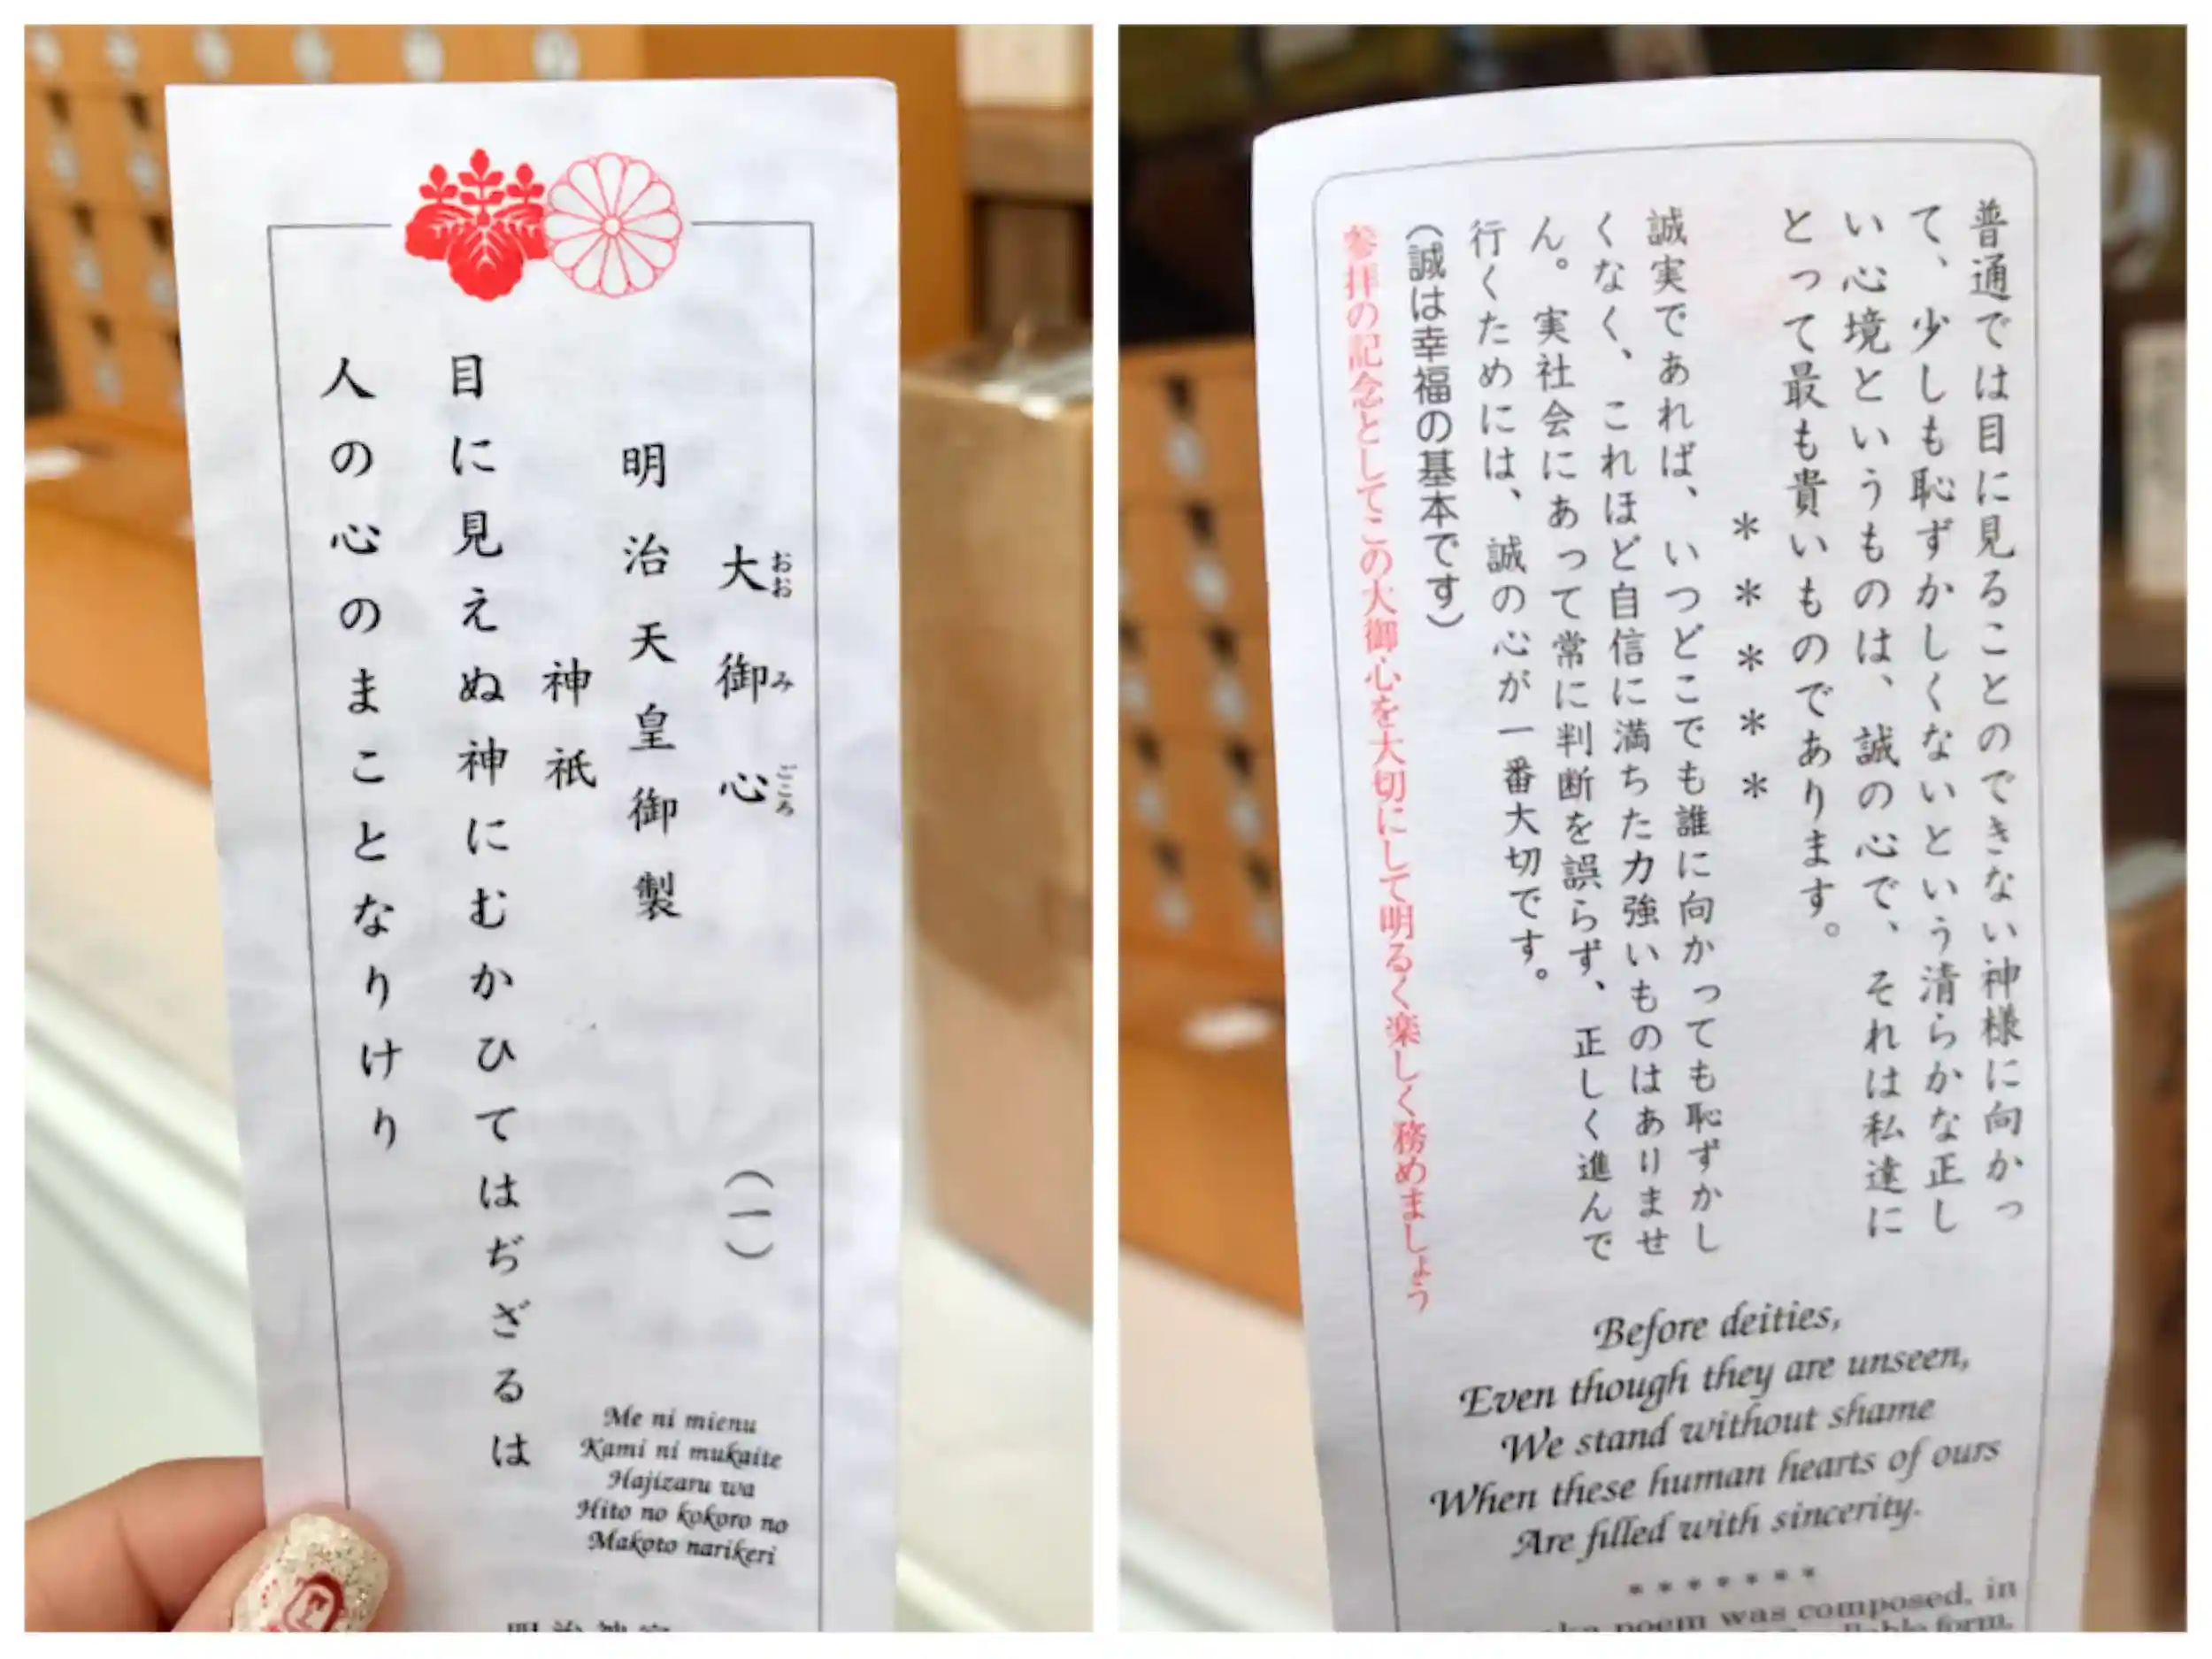 大御心 (一)
おお み ごころ
明治天皇御製
神祇
目に見えぬ神にむかひてはぢざるは
人の心のまことなりけり
Me ni mienu
Kami ni mukaite
Hajizaru wa
Hito no kokoro no
Makoto narikeri
普通では目に見ることのできない神様に向かっ
て、少しも恥ずかしくないという清らかな正し
い心境というものは、誠の心で、それは私達に
とって最も貴いものであります。
＊＊＊＊＊
誠実であれば、いつどこでも誰に向かっても恥ずかし
くなく、これほど自信に満ちた力強いものはありませ
ん。実社会にあって常に判断を誤らず、正しく進んで
行くためには、誠の心が一番大切です。
(誠は幸福の基本です)
参拝の記念としてこの大御心を大切にして明るく楽しく務めましょう
Before deities,
Even though they are unseen,
We stand without shame
When these human hearts of ours
Are filled with sincerity.
*******
poem was composed, in
form.